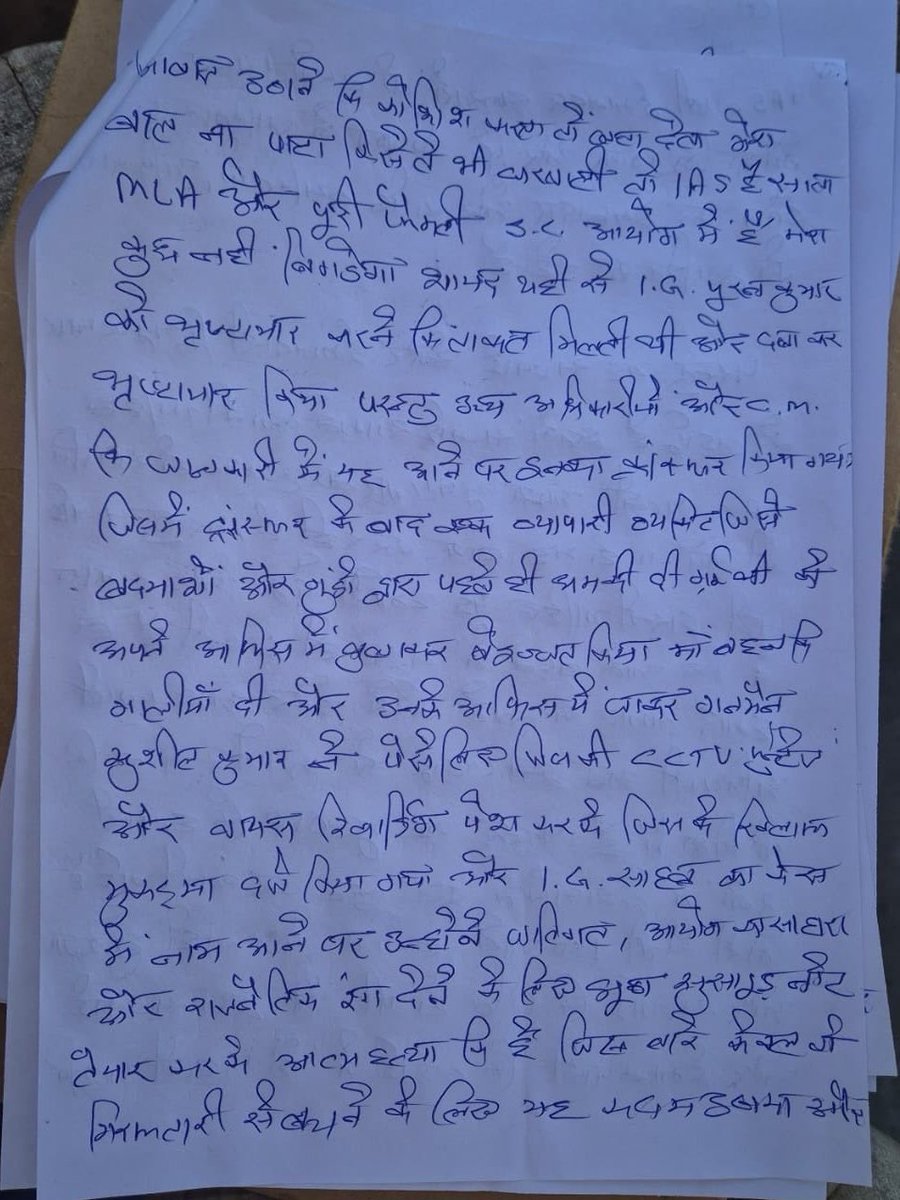 आवाज उठाने कि कोशिश करता तो कहा देता मेरा
बाल ना पाटा किसीते भी घरवाली तो IAS है साला
MLA और पूरी फैमली S.C. आयोग में है मेरा
कुछ नही बिगडेगा शायद यही से I.G. पुरन कुमार
को भृष्टाचार करने कि ताकत मिलती थी और दबा कर
भृष्टाचार किया परन्तु उच्च अधिकारीयो और C.M.
कि जानकारी में यह आने पर इनका ट्रांसफर किया गया
जिसमें ट्रांसफर के बाद एक व्यापारी व्यक्ति जिसे
बदमाशों और गुंडो द्वारा पहले ही धमकी दी गई थी को
अपने आफिस में बुलाकर बेइज्जत किया माँ बहन कि
गालीयाँ दी और उनके आफिस में जाकर गनमैन
सुशील कुमार ने पैसे लिए जिसकी CCTV फुटेज
और वायस रिकार्डिंग पेश करके जिसके खिलाफ
मुकदमा दर्ज किया गया और I.G. साहब का केस
में नाम आने पर उन्होने जातिगत, आयोग का सहारा
और राजनैतिक रंग देने के लिए झूठा सुसाइड नोट
तैयार करके आत्महत्या कि है जिस बारे कल की
गिरफ्तारी से बचने के लिए यह कदम उठाया और